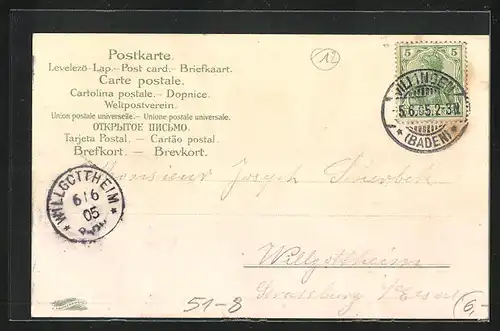 Postkarte.
Levelező-Lap.–Post card.–Briefkaart.
Carte postale.
Cartolina postale.–Dopnice.
Weltpostverein.
Union postale universelle.–Unione postale universale.
ОТКРЫТОЕ ПИСЬМО.
Tarjeta Postal. – Cartão postal.
Brefkort. – Brevkort.
12
5 5
VILLINGEN
5.6.05.2-3N.
* (BADEN) *
* WILLGOTTHEIM *
6/6
05
Monsieur Joseph
Willgottheim
Strassburg i/Elsass
51-8
6,-